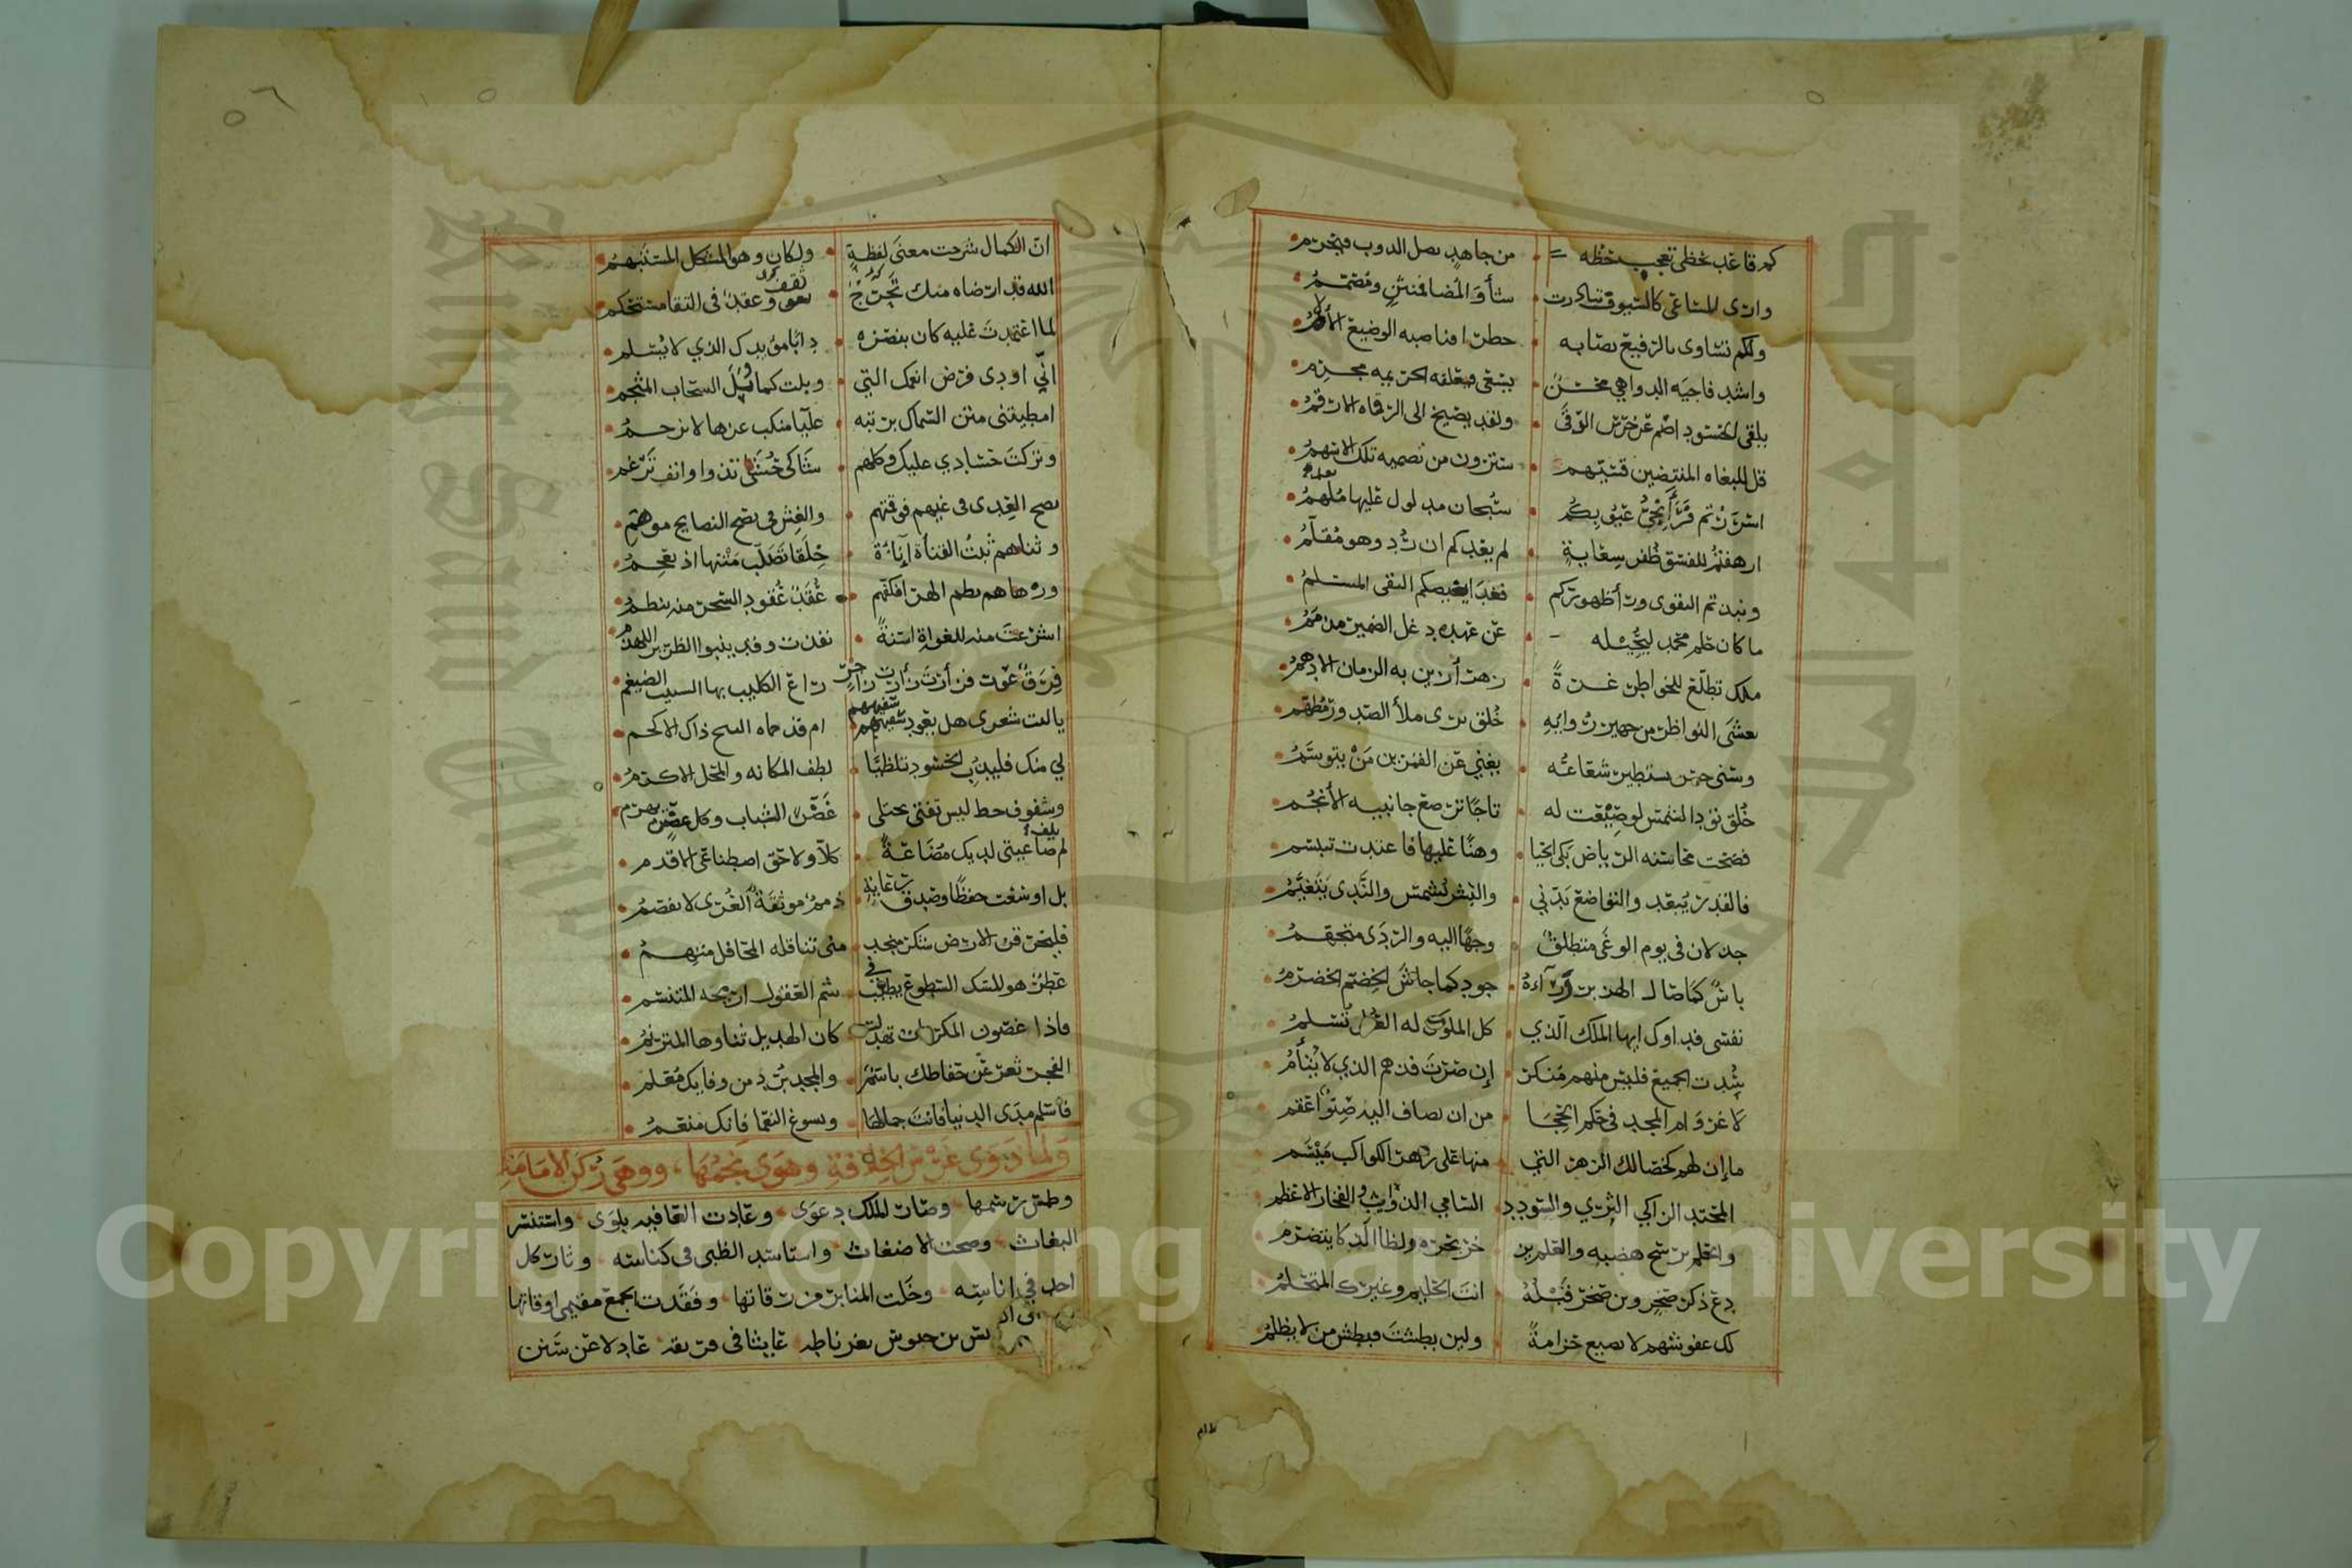 كم قاعد يحظى تعجب حظه من جاهد يصل الدوب فيحرم
وارى المساعى كالسيوف تبادرت شأو المضا فمنثن ومصمم
ولكم تساوى بالرفيع نصابه خطر فناصبه الوضيع الألأم
واشد فاجيه الدواهي محسن يسعى ليعلقه الجريمه مجرم
يلقى الحسود اصم عن جرس الوفى ولقد يصيخ الى الرقاه الارقم
قل للبغاه المنبضين قسيهم سترون من تصميه تلك الاسهم
اسررتم فرأى نجي عيوبكم سبحان مدلول عليها ملهم
ارهفتم للفسق ظفر سعاية لم يعدكم ان رد وهو مقلم
ونبذتم التقوى ورأ ظهوركم فغدا يقصيكم التقى المسلم
ما كان حلم محمد ليحيله عن عهده دغل الضمير مذمم
ملك تطلع للنواظر غرة زهرآ زين به الزمان الادهم
يعشى النواظر من جهير روايه خلق يرى ملأ الصدور مطهم
وسنى جبين يستطير شعاعه يغني عن القمرين من يتوسم
خلق تود الشمس لو صيغت له تاجا ترصع جانبيه الأنجم
فضحت محاسنه الرياض بكى الحيا وهنا عليها فاغتدت تبسم
فالقدر يبعد والتواضع يدني والبشر يشمس والندى يتغيم
جدلان في يوم الوغى متطلق وجها اليه والردى متجهم
باس كما صال الهزبر ورآءه جود كما جاش الخضم الخضرم
نفسى فداوك ايها الملك الذي كل الملوك له العلى تسلم
سدت الجميع فليس منهم منكر إن صرت فذهم الذي لا يتأم
لا غرو ام المجد في حكم الحجا من ان يصاف اليه صنو اعقم
ما إن لهم كخصالك الزهر التي منها على زهر الكواكب ميسم
المحتد الزاكي السري والسودد السامي الذوايب والفخار الاعظم
والحلم يرسخ هضبه والعلم يزخر بحره ولظا الذكا يتضرم
دع ذكر صخر وبن صخر قبله انت الحليم وغيرك المتحلم
لك عفو شهم لا يضيع حزامة ولين بطشت فبطش من لا يظلم
ان الكمال شرحت معنى لفظه ولكان وهو المشكل المستبهم
الله قد ارضاه منك تحرج وعقد في التقا مستحكم
لما اعتمدت عليه كان بنصره دابا مؤيدك الذي لا يسلم
انّى اودى فرض انعمك التي وبلت كما وبل السحاب المثجم
امطيتني متن السماك برتبه عليا منكب عزها لا يزحم
وتركت حسادي عليك وكلهم شاكى حشى تدوا وانف ترغم
نصح العدى في غيهم فوقتهم والغش في نصح النصايح موهم
وثناهم ثبت القناة إناءة خلقا تصلب متنها اذ يعجم
وزهاهم نظم الهرآ فكفهم عقد عقود السحر منه ينظم
اشرعت منه للغواة اسنة نفذت وقد ينبوا الطرير اللهذم
فرق عوت فزأرت زأرة زاجر راع الكليب بها السبيت الضيغم
يا ليت شعرى هل يعود سفيههم ام قد حماه النبح ذاك الاكحم
لي منك فليذب الحسود تلظيا لطف المكانه والمحل الاكرم
وشفوف حظ ليس تفتى يجتلى غض الشباب وكل غض يهرم
لم تلف صاغيتى لديك مضاعة كلا ولا حق اصطناعى الاقدم
بل اوسعت حفظا وصدق رعاية ذمم موثقة العرى لا تفصم
فليخرقن الارض شكر منجد منى تناقله المحافل متهم
عطر هو المسك السطوع يطيب في شم العقول اريجه المتنسم
فاذا غصون المكرمات تهدلت كان الهديل ثناوها المترنم
الفجر ثغر عن حفاظك باسم والمجد برد من وفايك معلم
فاسلم مدى الدنيا فانت جمالها وتسوغ النعما فانك منعم
ولما ذوى غرس الخلافة وهوى نجمها، ووهى ركن الامامة
وطمس رسمها وصار الملك دعوى وعادت العافيه بلوى واستنسر
البغاث وصحت الاضغاث واستاسد الظبى في كناسه وثار كل
احد في اناسه وخلت المنابر من رقاتها وفقدت الجمع مقيمي اوقاتها
بن حبوس بغرناطه عايثا في فريقه عادلا عن سنن